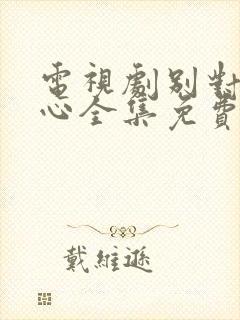 電視劇別對
心全集免費
戴維遜